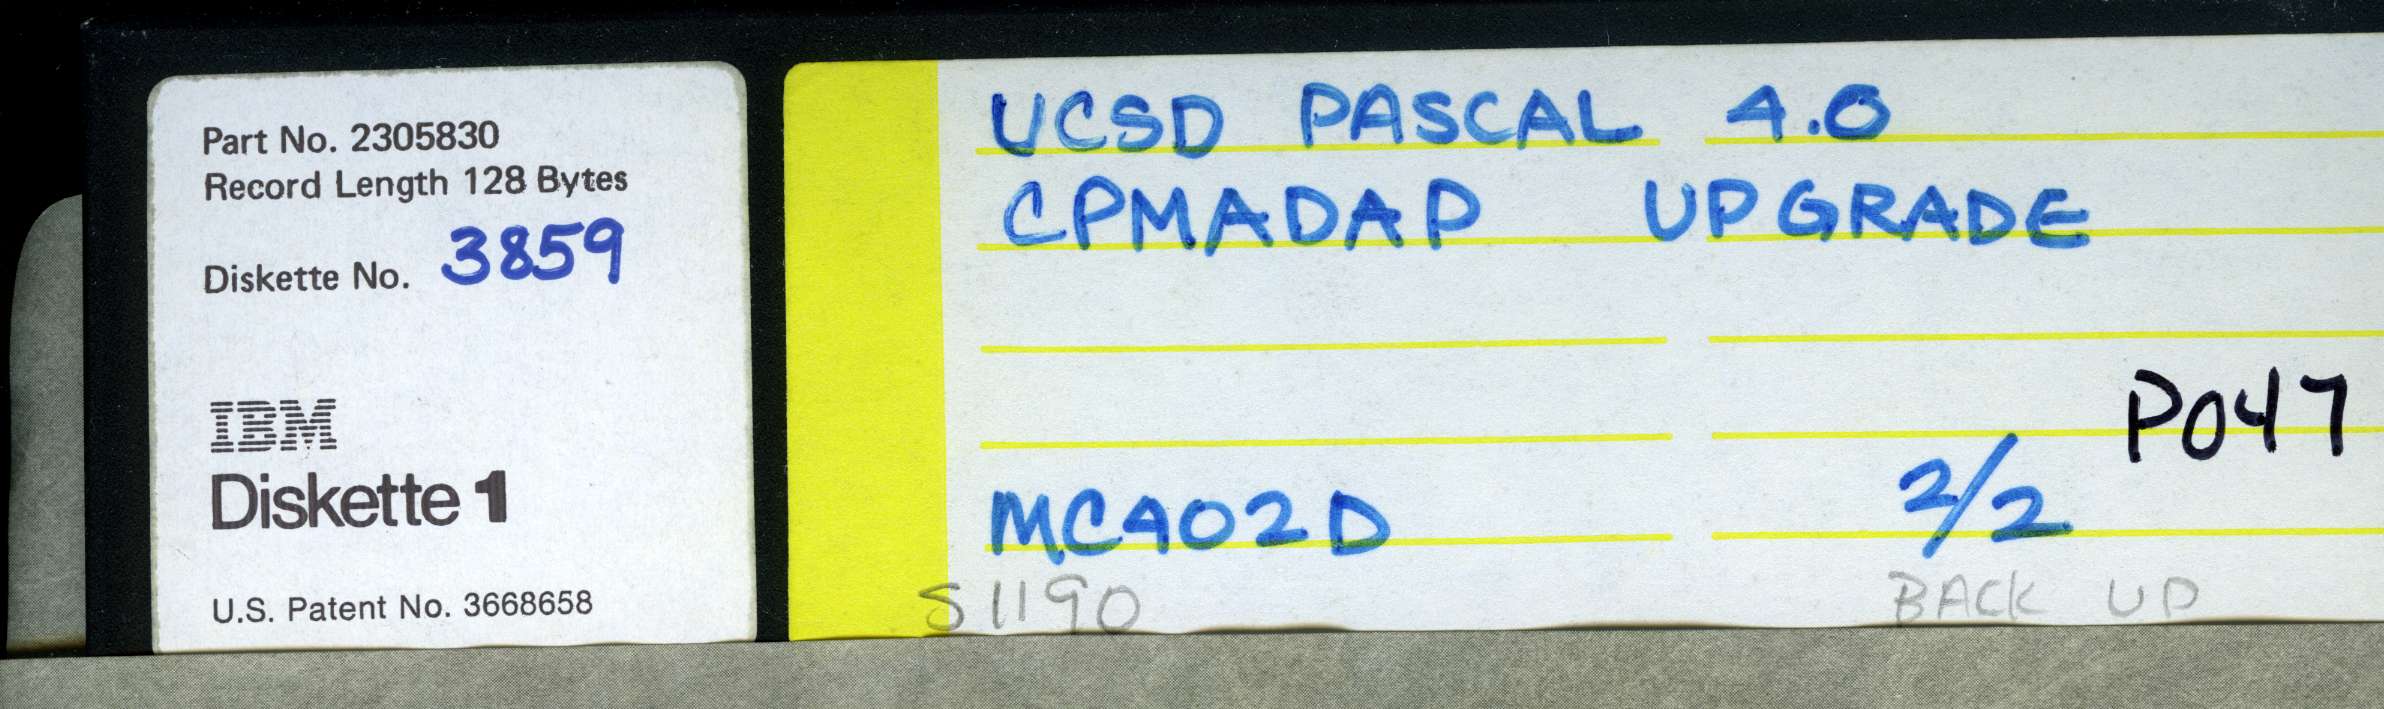 Part No. 2305830
Record Length 128 Bytes
Diskette No. 3859
IBM
Diskette 1
U.S. Patent No. 3668658
UCSD PASCAL 4.0
CPMADAP UPGRADE
P047
MC402D 2/2
S1190 BACK UP